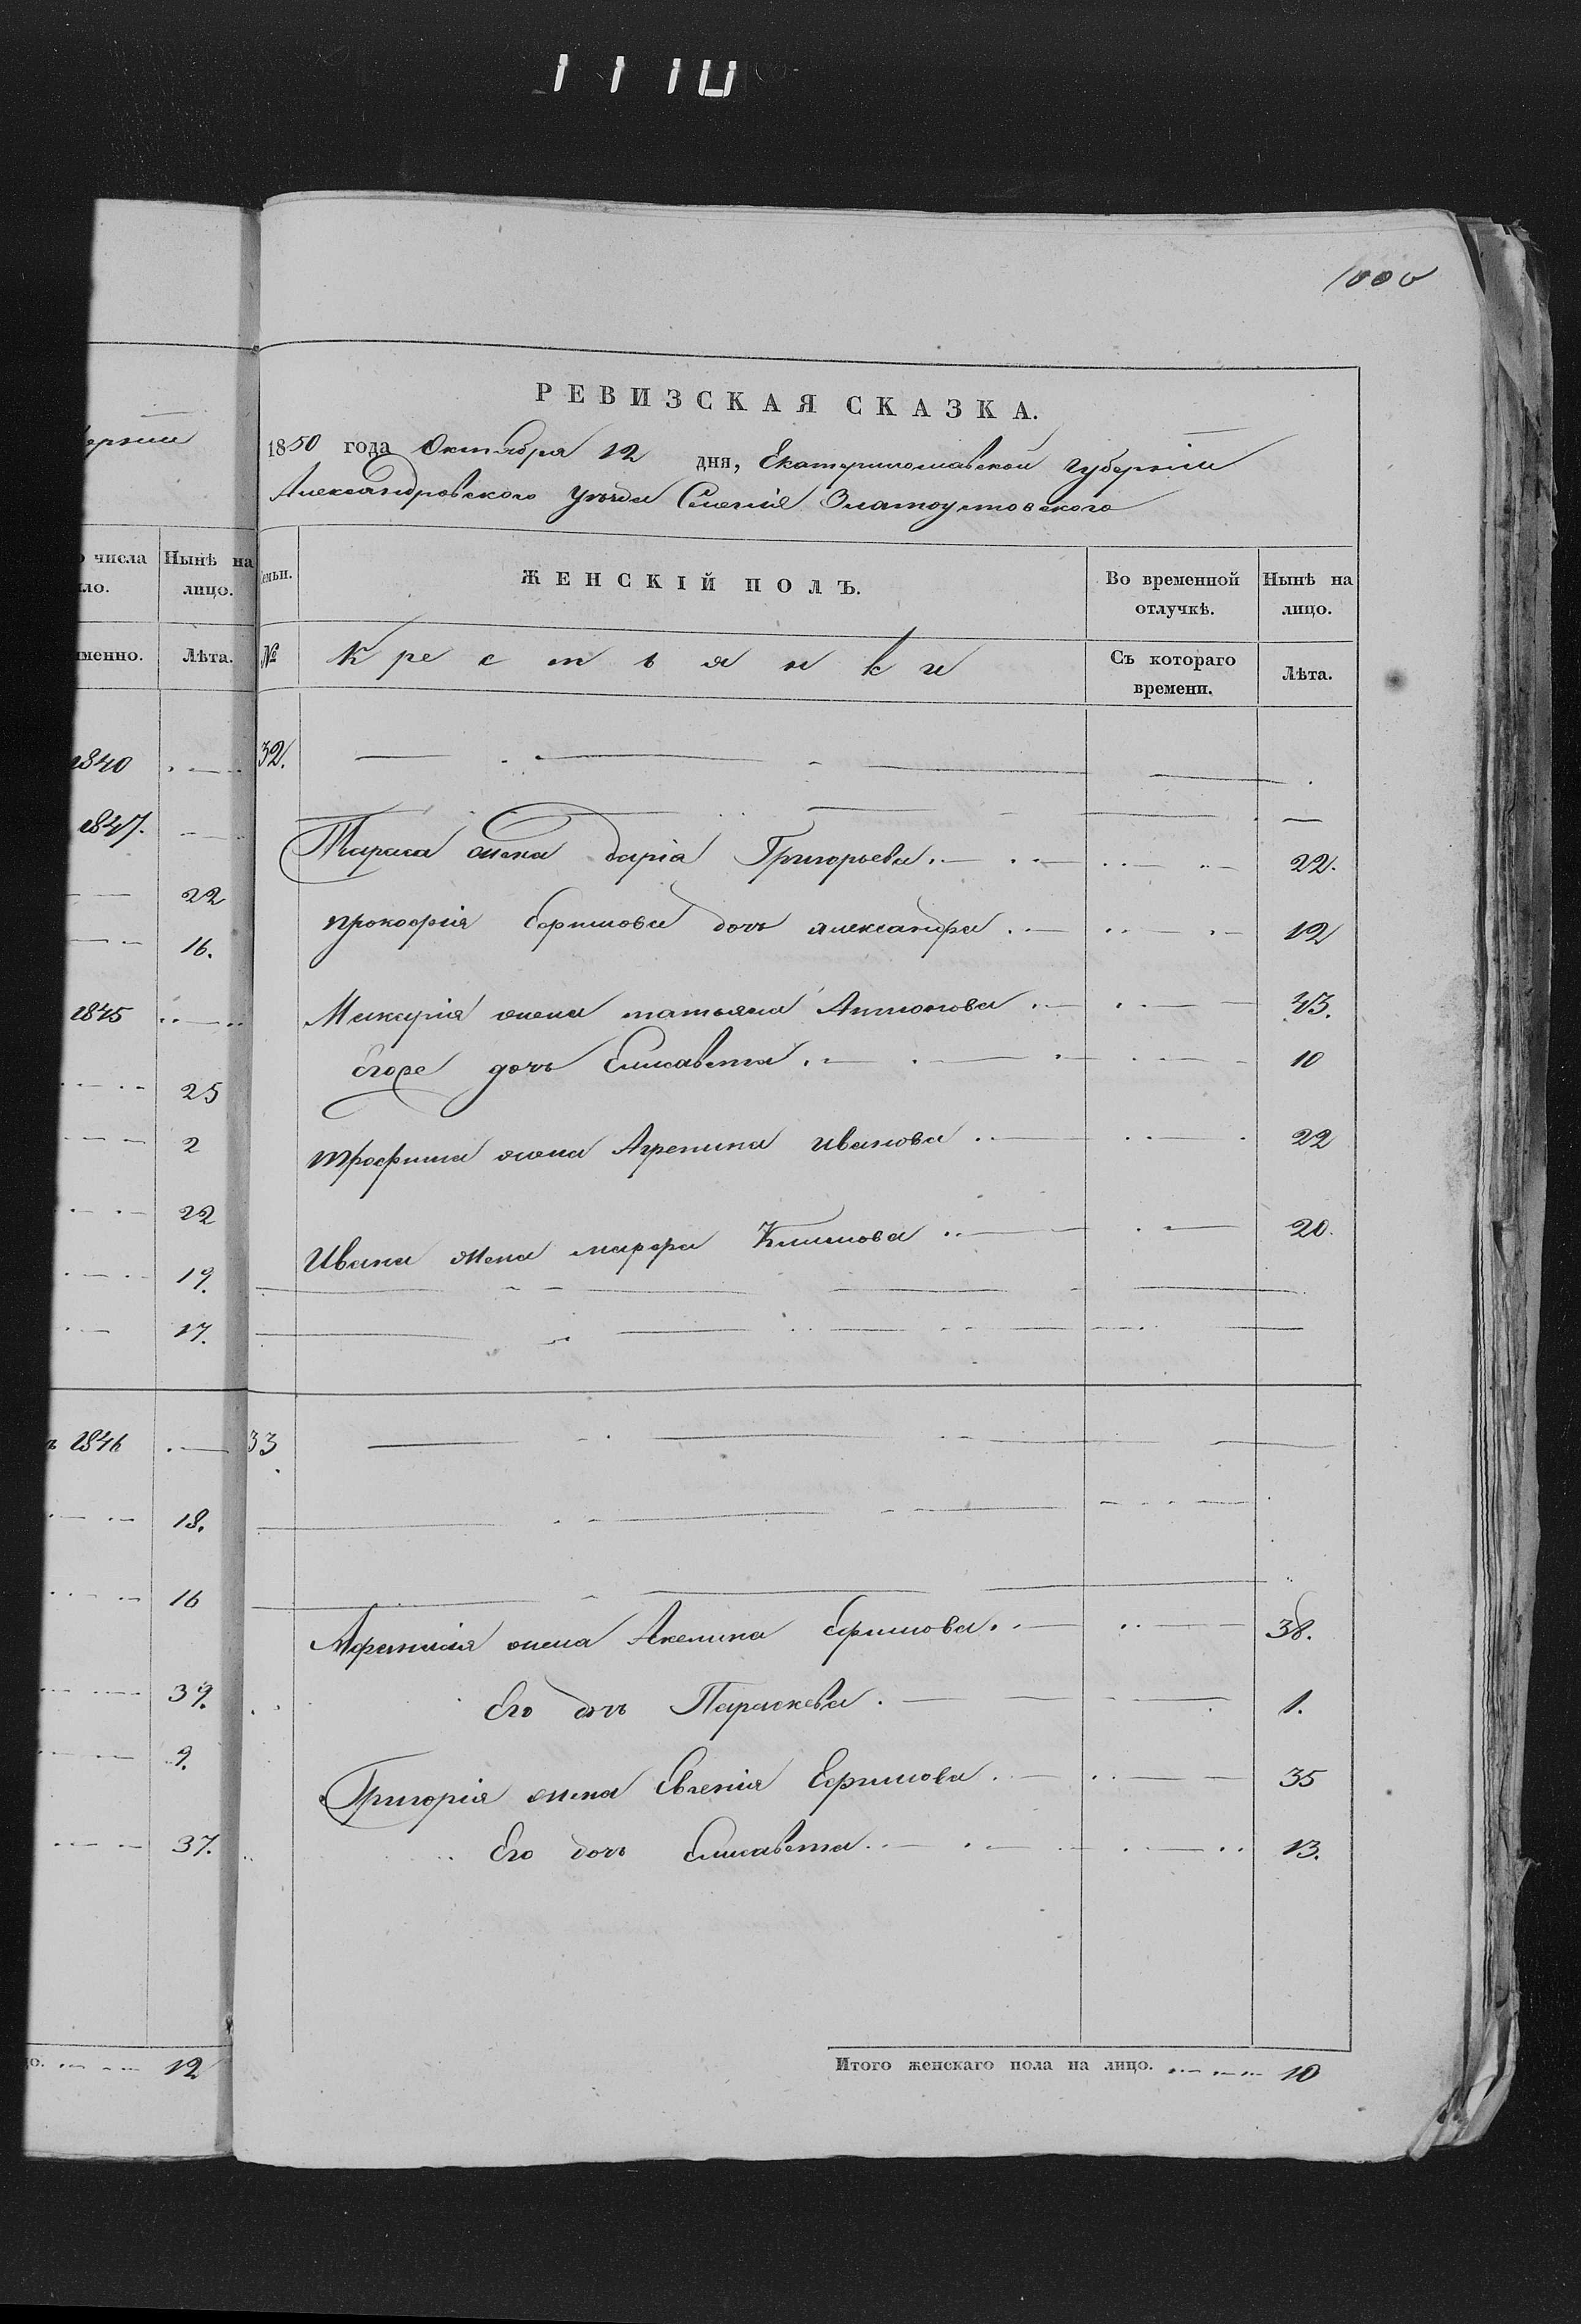 1110
1000
РЕВИЗСКАЯ СКАЗКА.
1850 года Октября 12 дня, Екатеринославской губернiи
Александровского уезда Селенiя Златоустовского
числа
Нынѣ на лицо.
Лѣта.
1840
1847.
22
16.
1845
25
2
22
19.
17.
1846
18.
16
39.
9.
37.
12
№ ЖЕНСКІЙ ПОЛЪ. Во временной отлучкѣ. Нынѣ на лицо.
Крестьянки Съ котораго времени. Лѣта.
32.
Тараса жена Дарiа Григорьева 22.
Прокофiя Ефимова дочь Александра 12
Макарiя жена Татьяна Антонова 43.
Егоре дочь Елисавета 10
Трофима жена Агрепина Иванова 22
Ивана жена Марфа Климова 20.
33
Афанасiя жена Акелина Ефимова 38.
Его дочь Параскева 1.
Григорiя жена Евгенiя Ефимова 35
Его дочь Елисавета 13.
Итого женскаго пола на лицо. 10